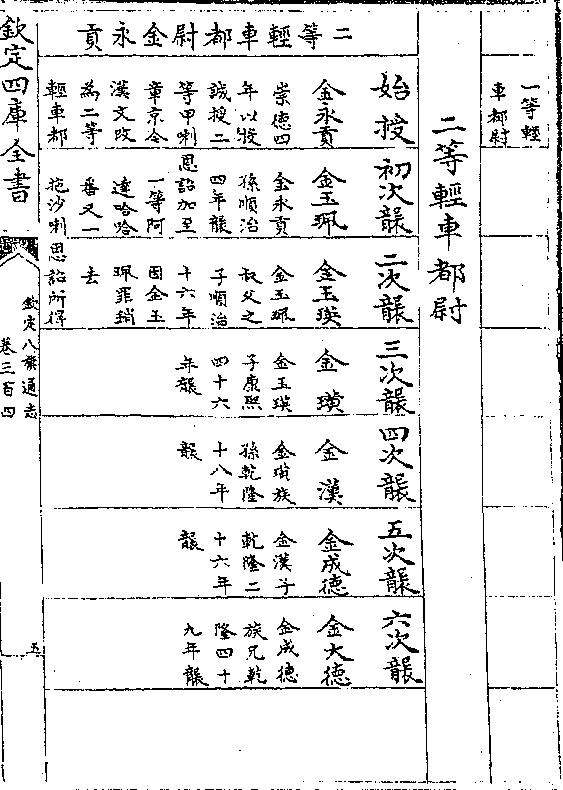 一等輕
車都尉
二等輕車都尉
二等輕車都尉金永貢
始授
金永貢
崇德四
年以投
誠授二
等甲喇
章京今
漢文改
為二等
輕車都
初次襲
金玉珮
金永貢
孫順治
四年襲
恩詔加至
一等阿
達哈哈
番又一
拖沙喇
二次襲
金玉瑛
金玉珮
叔父之
子順治
十六年
因金玉
珮罪銷
去
恩詔所得
三次襲
金璜
金玉瑛
子康熙
四十六
年襲
四次襲
金漢
金璜族
孫乾隆
十八年
襲
五次襲
金成德
金漢子
乾隆二
十六年
襲
六次襲
金大德
金成德
族兄乾
隆四十
九年襲
欽定四庫全書
欽定八旗通志
卷三百四
五